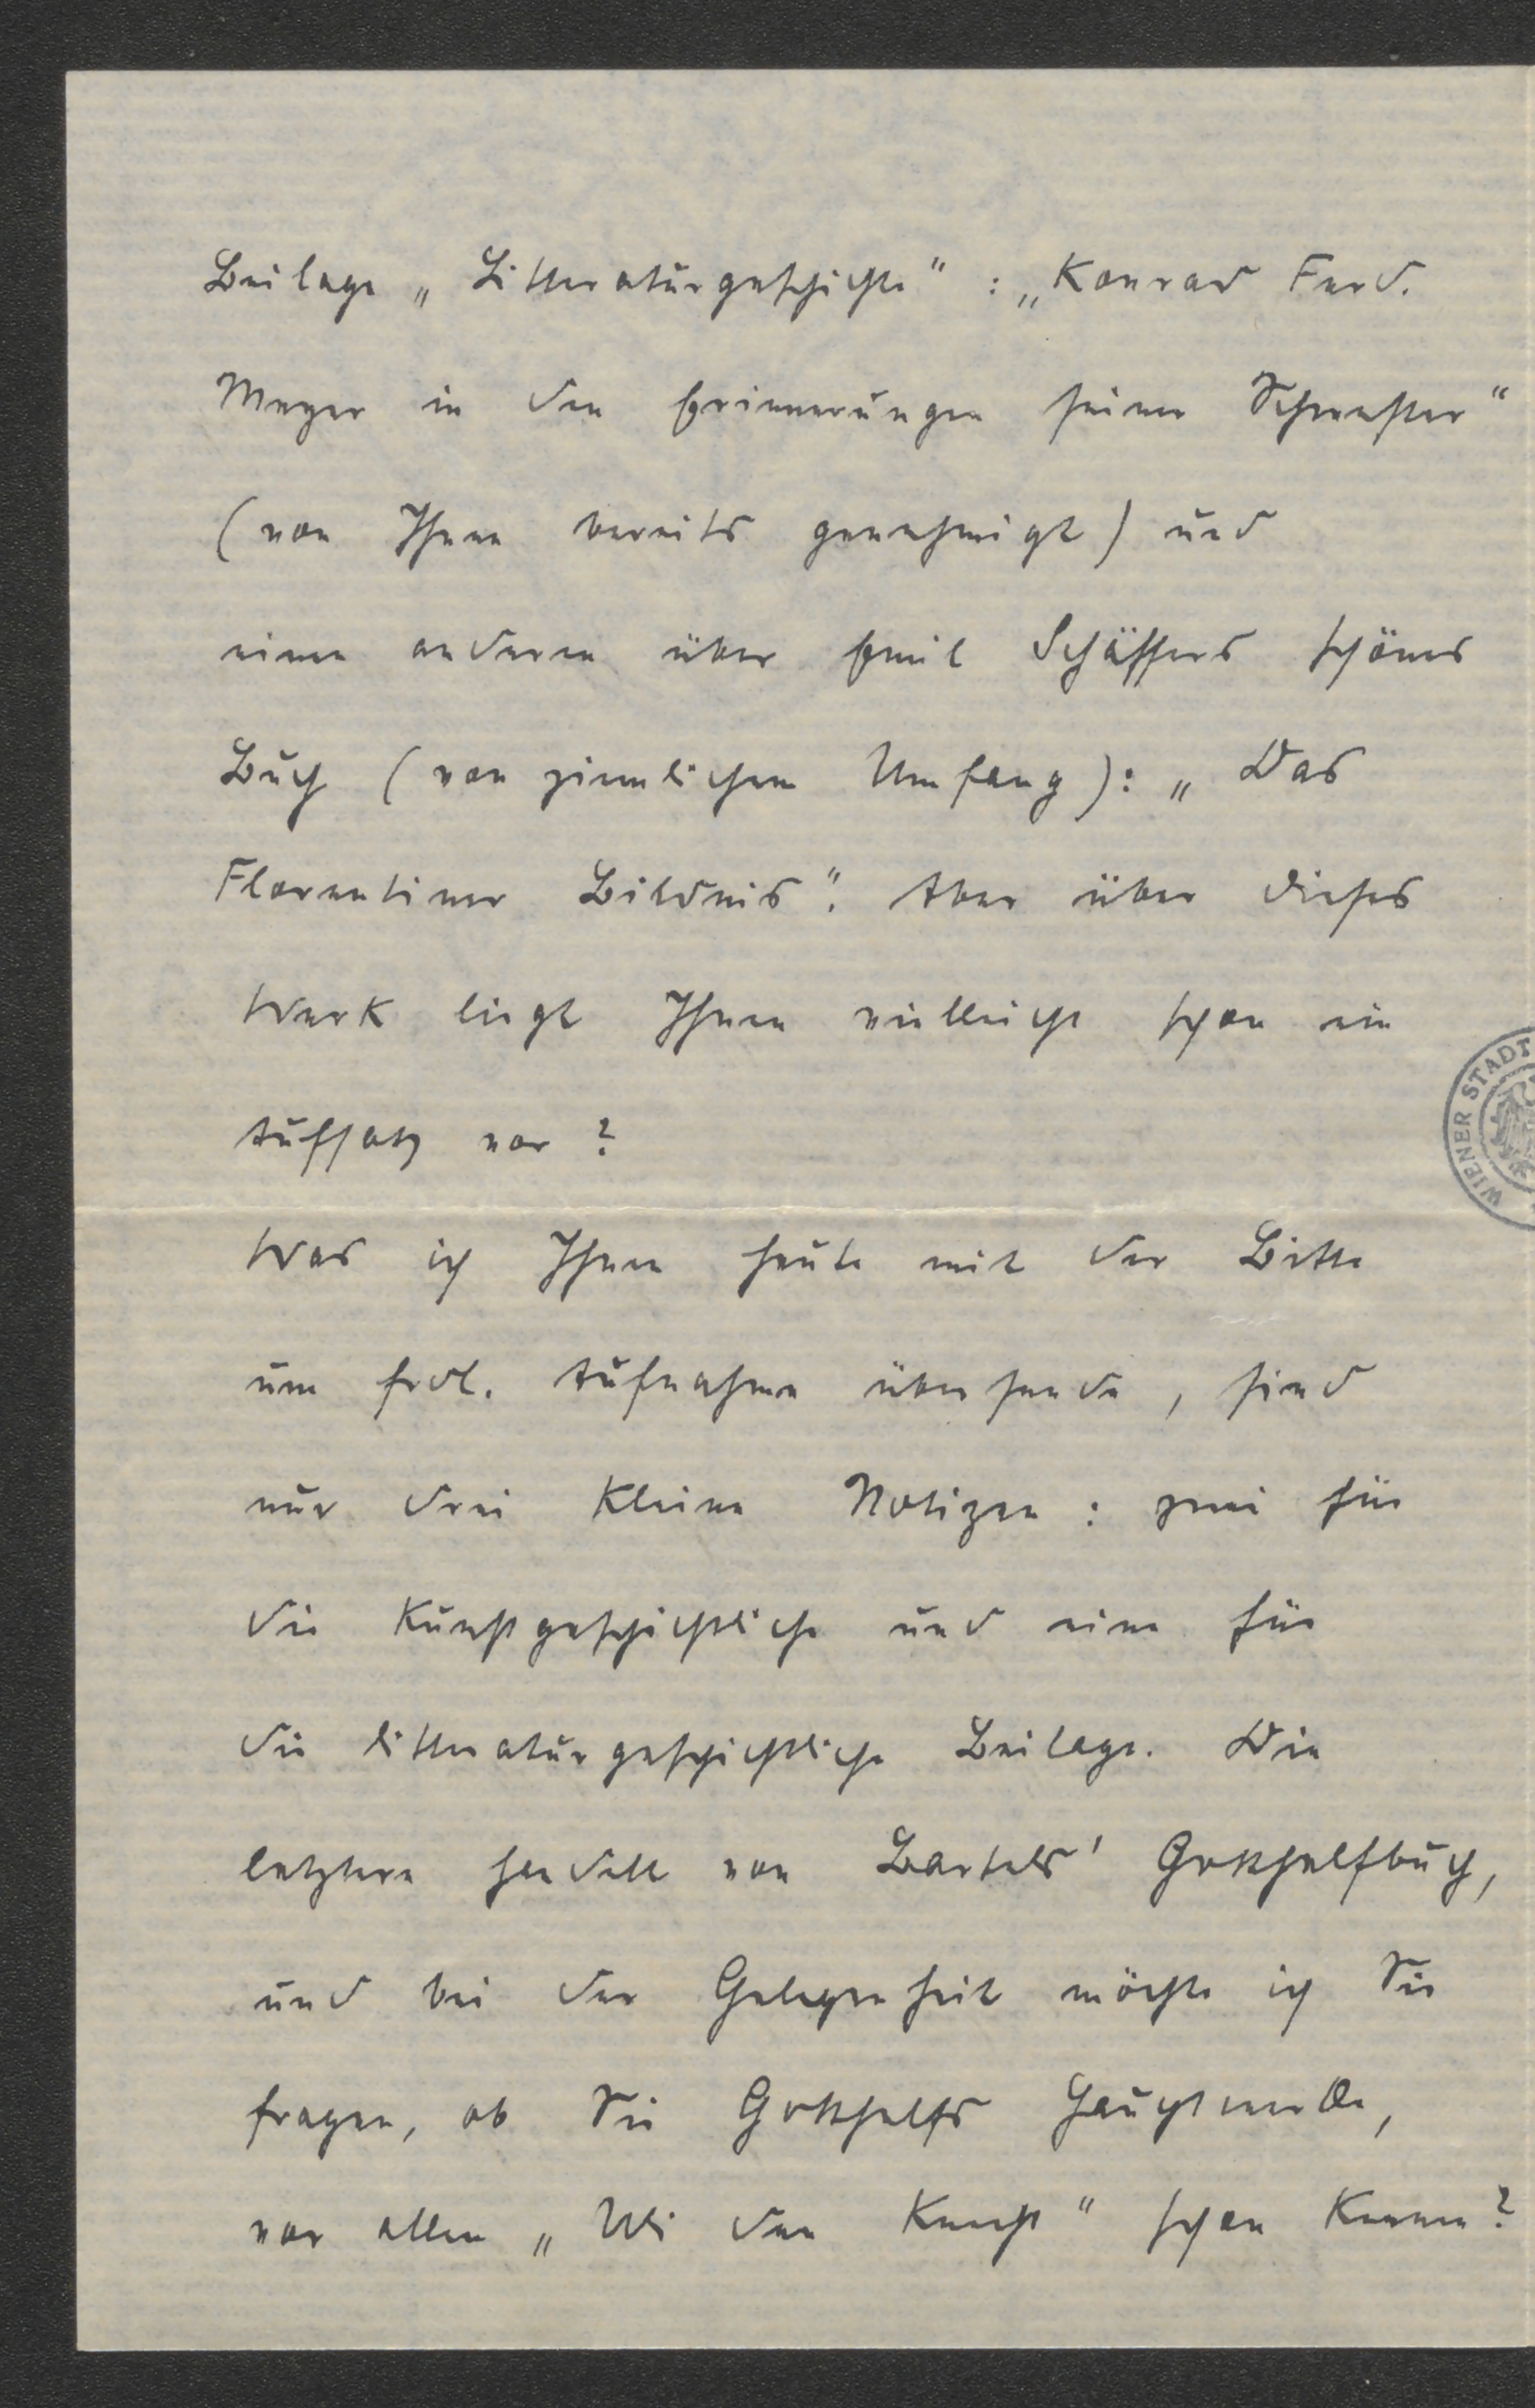 Beilage „Litteraturgeschichte“: „Konrad Ferd.
Meyer in den Erinnerungen seiner Schwester“
(von Ihnen bereits genehmigt) und
einen anderen über Emil Schäffers schönes
Buch (von ziemlichem Umfang): „Das
Florentiner Bildnis“. Aber über dieses
Werk liegt Ihnen vielleicht schon ein
Aufsatz vor?
Was ich Ihnen heute mit der Bitte
um frdl. Aufnahme übersende, sind
nur drei kleine Notizen: zwei für
die kunstgeschichtliche und eine für
die litteraturgeschichtliche Beilage. Die
letztere handelt von Bartels' Gotthelfbuch,
und bei der Gelegenheit möchte ich Sie
fragen, ob Sie Gotthelfs Hauptwerke,
vor allem „Uli den Knecht“ schon kennen?
WIENER STADT